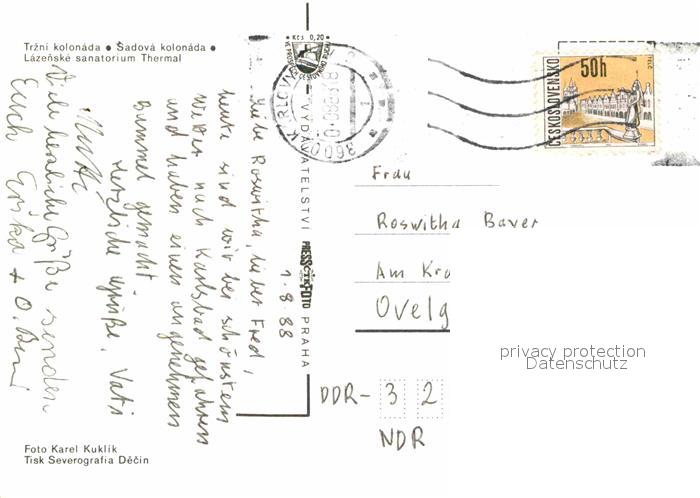 Tržní kolonáda • Sadová kolonáda •
Lázeňské sanatorium Thermal
1.8.88
Liebe Roswitha, lieber Fred,
heute sind wir bei schönstem
Wetter nach Karlsbad gefahren
und haben einen angenehmen
Bummel gemacht.
Herzliche Grüße, Vati
Mutti
Viele herzliche Grüße senden
Euch Erika + O.
Foto Karel Kuklík
Tisk Severografia Děčín
VYDAVATELSTVÍ PRESSFOTO PRAHA
ČTK
Kčs 0,20
KARLOVY
360 01
ČESKOSLOVENSKO
50h
TELČ
Frau
Roswitha Bauer
Am Kro
Ovelg
DDR- 3 2
NDR
privacy protection
Datenschutz